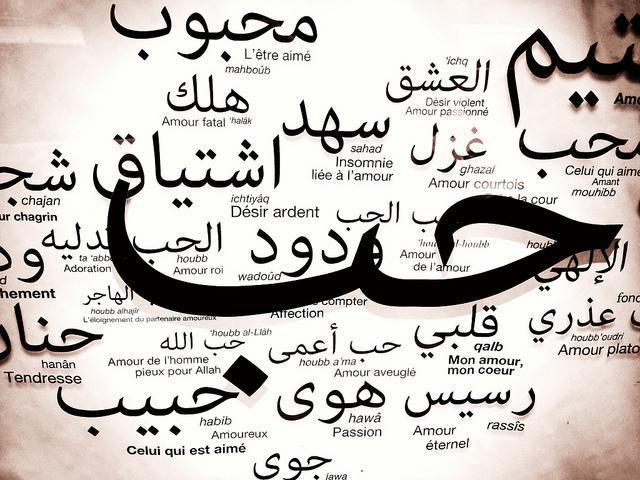 محبوب
L'être aimé
mahboûb
'ichq
العشق
Désir violent
Amour passionné
هلك
Amour fatal 'halâk
سهد
sahad
Insomnie
liée à l'amour
غزل
ghazal
Amour courtois
محب
Celui qui aime
Amant
mouhibb
اشتياق
ichtiyâq
Désir ardent
chajan
ur chagrin
حب
ta 'abb
Adoration
الحب
houbb
Amour roi
ودود
wadoûd
الحب
Amour
de l'amour
la cour
houbb
الإلهي
الهاجر
houbb alhajîr
L'éloignement du partenaire amoureux
compter
Affection
حب الله
'houbb al-Llâh
Amour de l'homme
pieux pour Allah
حب أعمى
houbb a'ma
Amour aveuglé
قلبي
qalb
Mon amour,
mon coeur
عذري
houbb 'oudri
Amour plato
hanân
Tendresse
حبيب
habib
Amoureux
Celui qui est aimé
هوى
hawâ
Passion
رسيس
rassîs
Amour
éternel
جوى
jawa